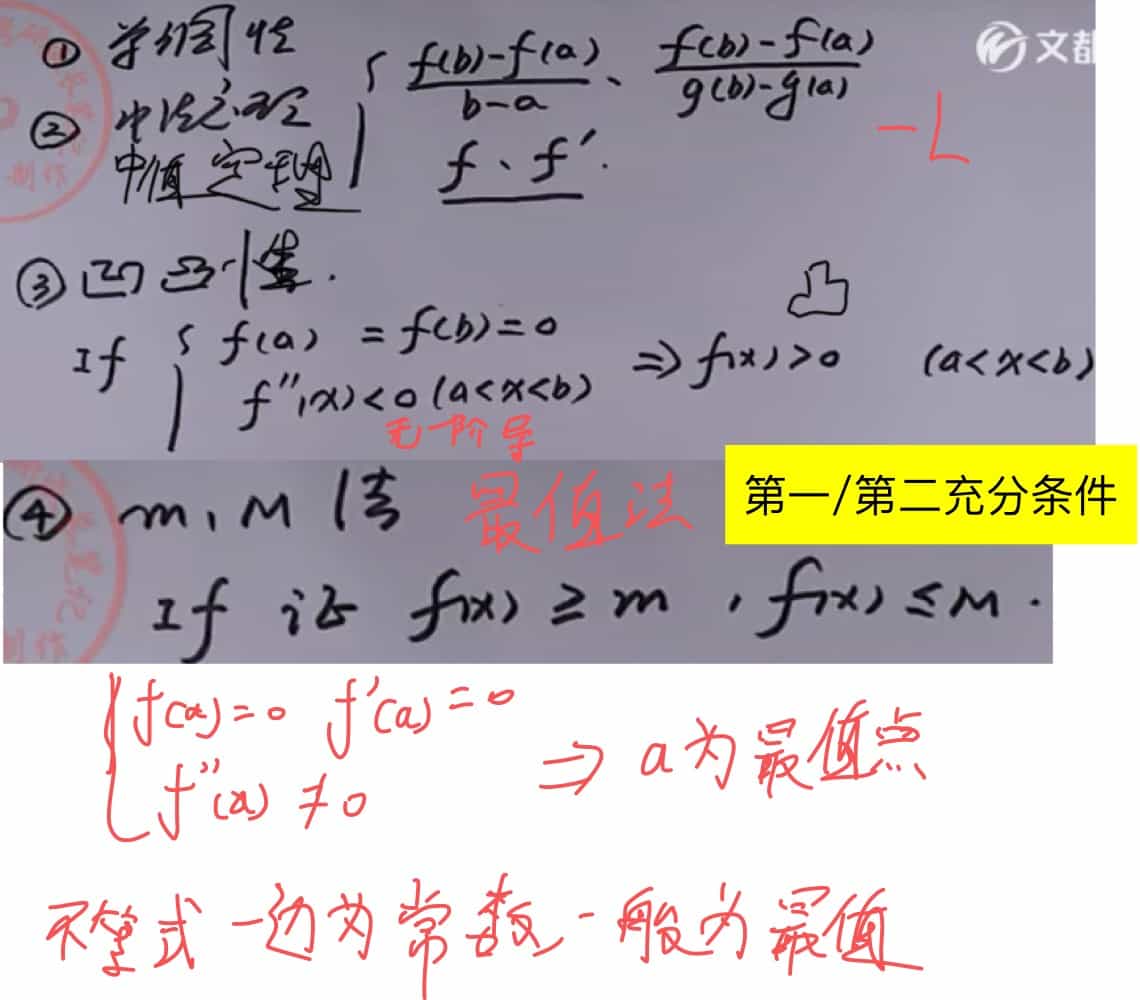 ① 单调性
② 中值定理 { f(b)-f(a) / b-a 、 f(b)-f(a) / g(b)-g(a)
中值定理 f、f′.
-L
③ 凹凸性.
凸
If { f(a) = f(b)=0
f″(x)<0 (a<x<b) ⇒ f(x)>0 (a<x<b)
无一阶导
④ m, M 法 最值法
第一/第二充分条件
If 证 f(x) ≥ m , f(x) ≤ M .
{ f(a)=0 f′(a)=0
f″(a) ≠ 0 ⇒ a为最值点
不等式一边为常数一般为最值
文都
制作